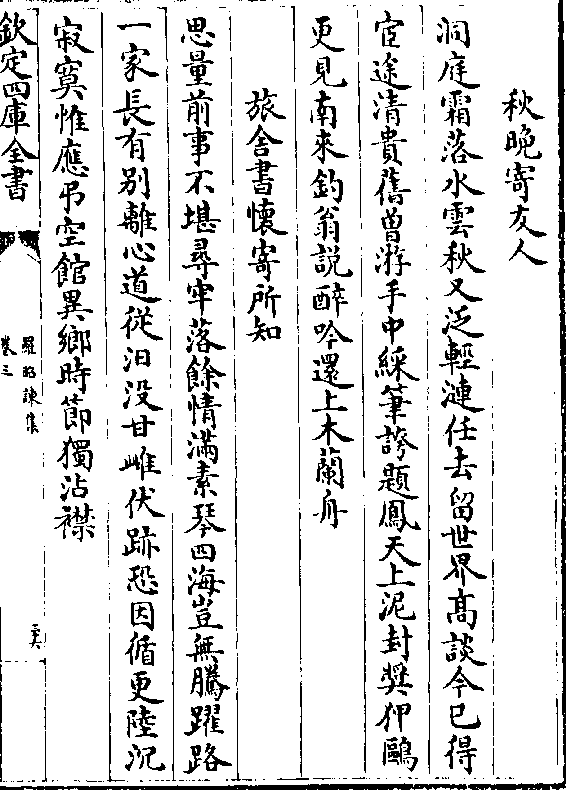 秋晚寄友人
洞庭霜落水雲秋又泛輕漣任去留世界髙談今已得
宦途清貴舊曽游手中綵筆誇題鳳天上泥封奨狎鷗
更見南來釣翁説醉吟還上木蘭舟
旅舎書懷寄所知
思量前事不堪尋牢落餘情滿素琴四海豈無騰躍路
一家長有别離心道從汨没甘雌伏跡恐因循更陸沉
寂寞惟應弔空館異鄉時節獨沾襟
欽定四庫全書
羅昭諫集
卷三